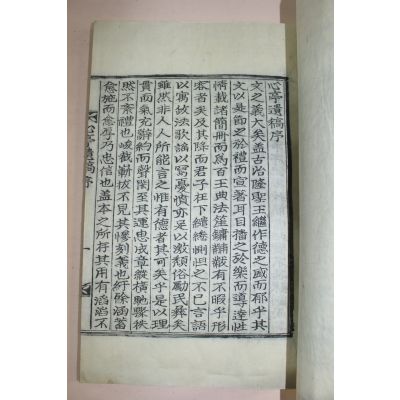 心亭遺稿序
文之義大矣盖古治隆聖王繼作德之盛而郁乎其
文以是節之於禮而宣著耳目播之於樂而導達性
情載諸簡冊而為百王典法笙鏞黼黻有不暇乎形
容者矣及其降而君子在下缱綣惻怛之不已言語
以寓故法歌謠以寫憂憤亦足以激頹俗勵民彝矣
雖然非人人所能言之惟有德者其可矣乎是以理
貫而氣充辭約而聲閎至其運思成章縱橫馳驟秩
然不紊禮也峻截嶄拔不見其慘刻義也紆餘涵蓄
愈施而愈厚乃忠信也盖本之所存其用有滔滔不
心亭遺稿序
一